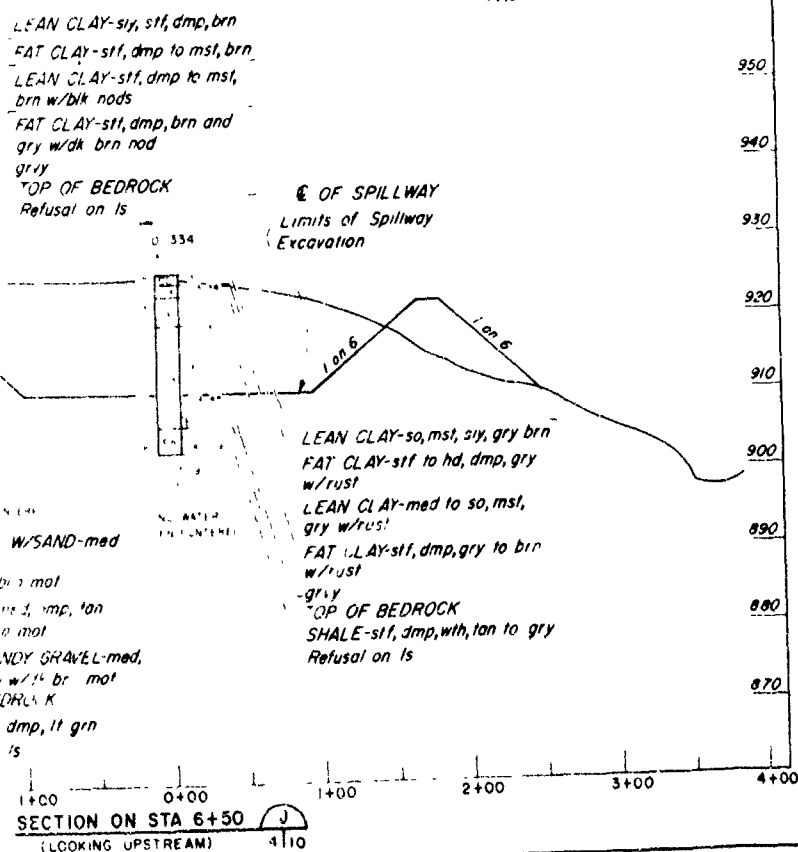 LEAN CLAY-sly, stf, dmp, brn
FAT CLAY-stf, dmp to mst, brn
LEAN CLAY-stf, dmp to mst,
brn w/blk nods
FAT CLAY-stf, dmp, brn and
gry w/dk brn nod
grvy
TOP OF BEDROCK
Refusal on ls
℄ OF SPILLWAY
Limits of Spillway
Excavation
334
1 on 6
1 on 6
950
940
930
920
910
900
890
880
870
LEAN CLAY-so, mst, sly, gry brn
FAT CLAY-stf to hd, dmp, gry
w/rust
LEAN CLAY-med to so, mst,
gry w/rust
FAT CLAY-stf, dmp, gry to brn
w/rust
grvy
TOP OF BEDROCK
SHALE-stf, dmp, wth, tan to gry
Refusal on ls
NO WATER
ENCOUNTERED
W/SAND-med
mot
dmp, tan
mot
GRAVEL-med,
mot
dmp, lt grn
ls
1+00
0+00
1+00
2+00
3+00
4+00
SECTION ON STA 6+50
J
(LOOKING UPSTREAM)
4 10